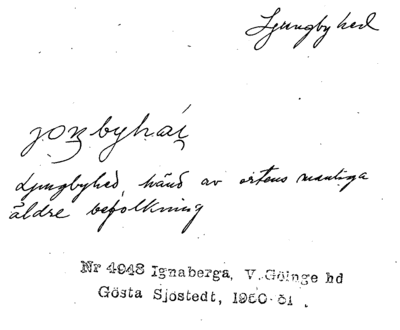 Ljungbyhed
Ljungbyhed, känd av ortens manliga
äldre befolkning
Nr 4048 Ignaberga, V. Göinge hd
Gösta Sjöstedt, 1960-61.